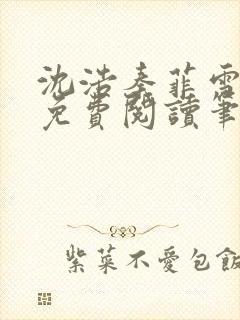 沈浩秦菲雪
免費閱讀筆
紫菜不愛包飯